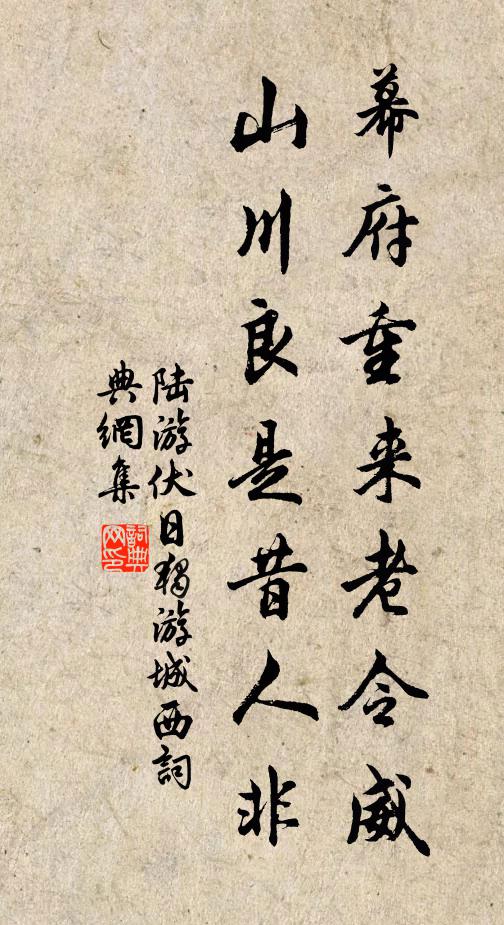 幕府重来老令威
山川良是昔人非
陆游伏日独游城西詞
典網集
詞典
网印